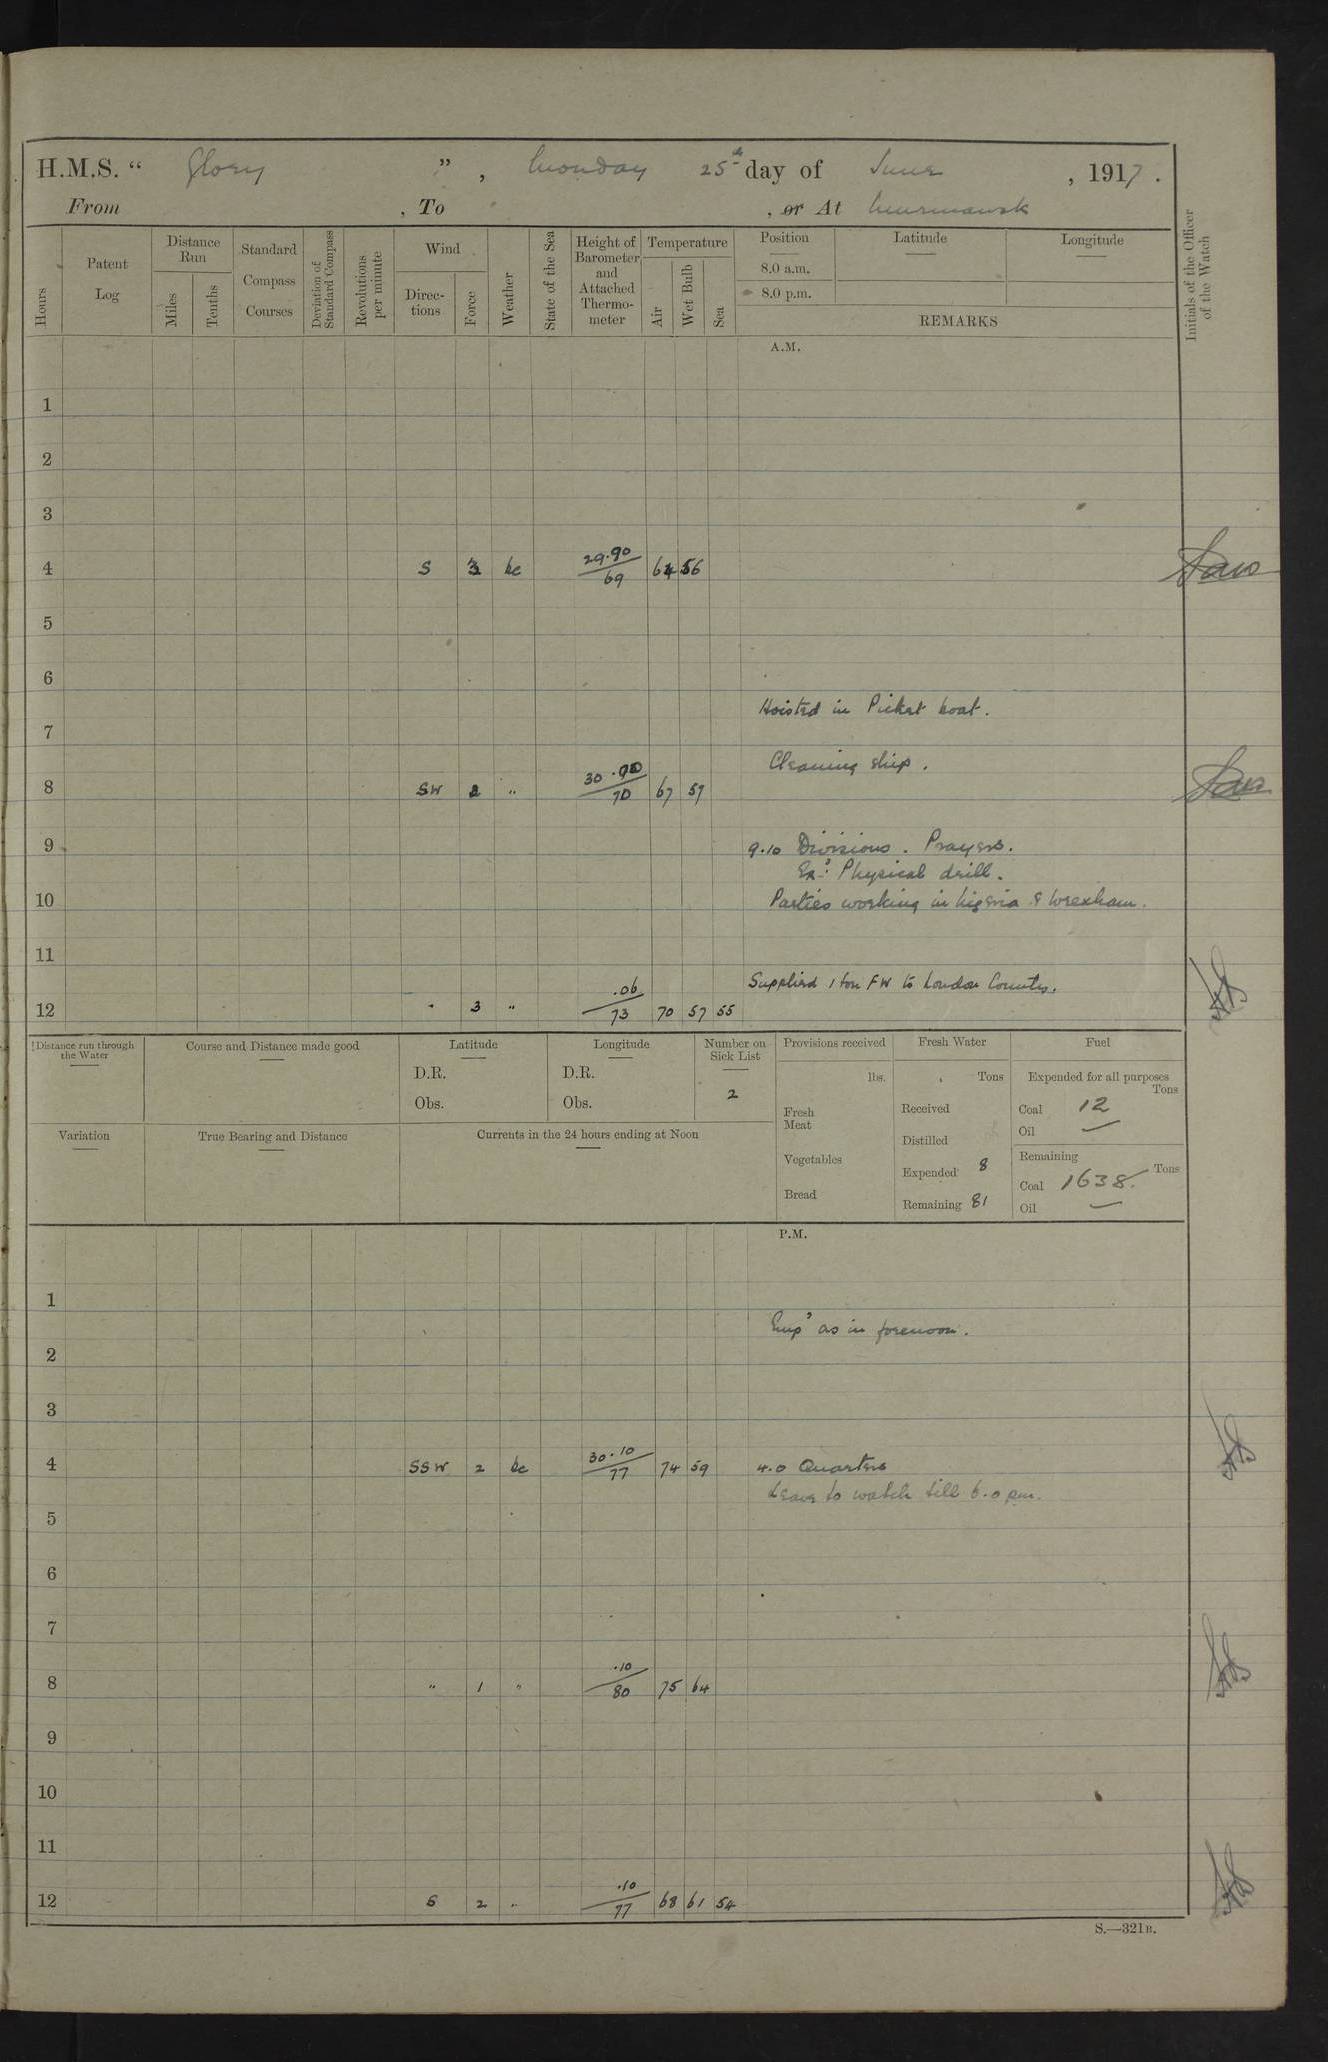 H.M.S. “ Glory ” , Monday 25th day of June , 1917 .
From , To , or At Murmansk
Hours
Patent Log
Distance Run
Miles
Tenths
Standard Compass Courses
Deviation of Standard Compass
Revolutions per minute
Wind
Directions
Force
Weather
State of the Sea
Height of Barometer and Attached Thermometer
Temperature
Air
Wet Bulb
Sea
Position
8.0 a.m.
8.0 p.m.
Latitude
Longitude
REMARKS
Initials of the Officer of the Watch
A.M.
1
2
3
4 S 3 bc 29.90/69 64 56
5
6
Hoisted in Picket boat.
7
Cleaning ship.
8 SW 2 " 30.00/70 67 57
9 9.10 Divisions. Prayers.
Ex: Physical drill.
10 Parties working in Nigeria & Wrexham.
11
Supplied 1 ton FW to London County.
12 " 3 " .06/73 70 57 55
Distance run through the Water
Course and Distance made good
Latitude
D.R.
Obs.
Longitude
D.R.
Obs.
Number on Sick List
2
Provisions received
lbs.
Fresh Meat
Vegetables
Bread
Fresh Water
Tons
Received
Distilled
Expended 8
Remaining 81
Fuel
Expended for all purposes
Tons
Coal 12
Oil —
Remaining
Tons
Coal 1638
Oil —
Variation
True Bearing and Distance
Currents in the 24 hours ending at Noon
P.M.
1
Emp' as in forenoon.
2
3
4 SSW 2 bc 30.10/77 74 59 4.0 Quarters
Leave to watch till 6.0 pm.
5
6
7
8 " 1 " .10/80 75 64
9
10
11
12 S 2 " .10/77 68 61 54
S.—321B.